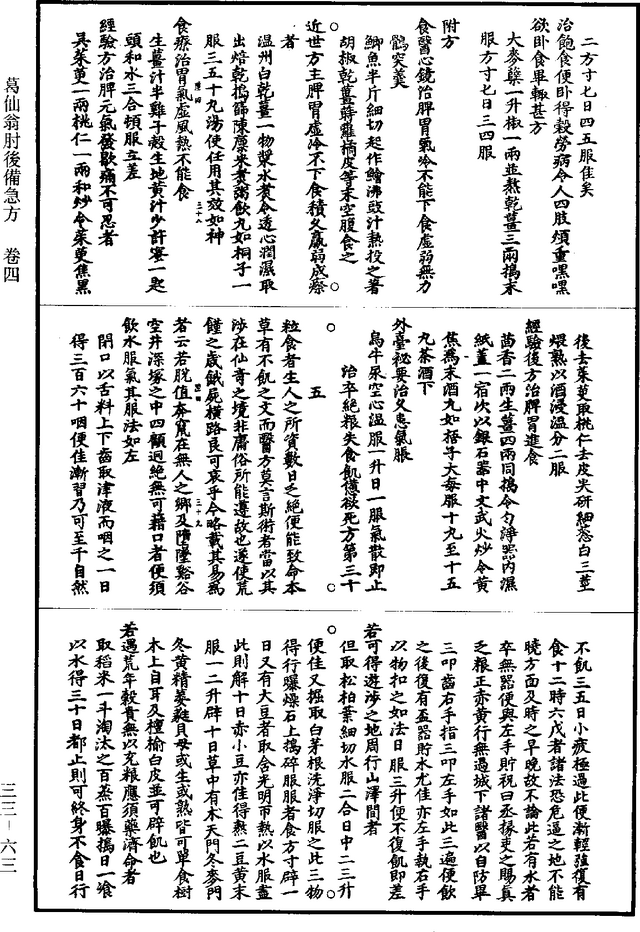 二方寸七日四五服佳矣
治飽食便臥得穀勞病令人四肢煩重嘿嘿
欲臥食畢輒甚方
大麥蘗一升椒一兩並熬乾薑三兩搗末
服方寸七日三四服
附方
食醫心鏡治脾胃氣冷不能下食虛弱無力
鶻突羹
鯽魚半斤細切起作鱠沸豉汁熱投之著
胡椒乾薑蒔蘿橘皮等末空腹食之
近世方主脾胃虛冷不下食積久羸弱成瘵
者
溫州白乾薑一物漿水煮令透心潤濕取
出焙乾搗篩陳廩米煮粥飲丸如桐子一
服三五十九湯使任用其效如神
食療治胃氣虛風熱不能食
生薑汁半雞子殼生地黃汁少許蜜一匙
頭和水三合頓服立差
經驗方治脾元氣發歇痛不可忍者
吳茱萸一兩桃仁一兩和炒令茱萸焦黑
後去茱萸取桃仁去皮尖研細葱白三莖
煨熟以酒浸溫分二服
經驗後方治脾胃進食
茴香二兩生薑四兩同搗令勻淨器內濕
紙蓋一宿次以銀石器中文武火炒令黃
焦為末酒丸如梧子大每服十丸至十五
丸茶酒下
外臺秘要治久患氣脹
烏牛尿空心溫服一升日一服氣散即止
治卒絕糧失食飢憊欲死方第三十
五
粒食者生人之所資數日之絕便能致命本
草有不飢之文而醫方莫言斯術者當以其
涉在仙奇之境非庸俗所能遵故也遂使荒
饉之歲餓屍橫路良可哀乎今略載其易為
者云若脫值奔竄在無人之鄉及墮墜谿谷
空井深塚之中四顧迥絕無可藉口者便須
飲水服氣其服法如左
閉口以舌料上下齒取津液而咽之一日
得三百六十咽便佳漸習乃可至千自然
不飢三五日小疲極過此便漸輕強復有
食十二時六戊者諸法恐危逼之地不能
曉方面及時之早晚故不論此若有水者
卒無器便與左手貯祝曰丞掾吏之賜真
乏糧正赤黃行無過城下諸醫以自防畢
三叩齒右手指三叩左手如此三遍便飲
之後復有盃器貯水尤佳亦左手執右手
以物扣之如法日服三升便不復飢即差
若可得遊涉之地周行山澤間者
但取松柏葉細切水服二合日中二三升
便佳又掘取白茅根洗淨切服之此三物
得行曝燥石上搗碎服服者食方寸辟一
日又有大豆者取含光明匝熱以水服盡
此則解十日赤小豆亦佳得熬二豆黃末
服一二升辟十日草中有朮天門冬麥門
冬黃精萎蕤貝母或生或熟皆可單食樹
木上自耳及檀榆白皮並可辟飢也
若遇荒年穀貴無以充糧應須藥濟命者
取稻米一斗淘汰之百蒸百曝搗日一飡
以水得三十日都止則可終身不食日行
葛仙翁肘後備急方　卷四
三三－六三